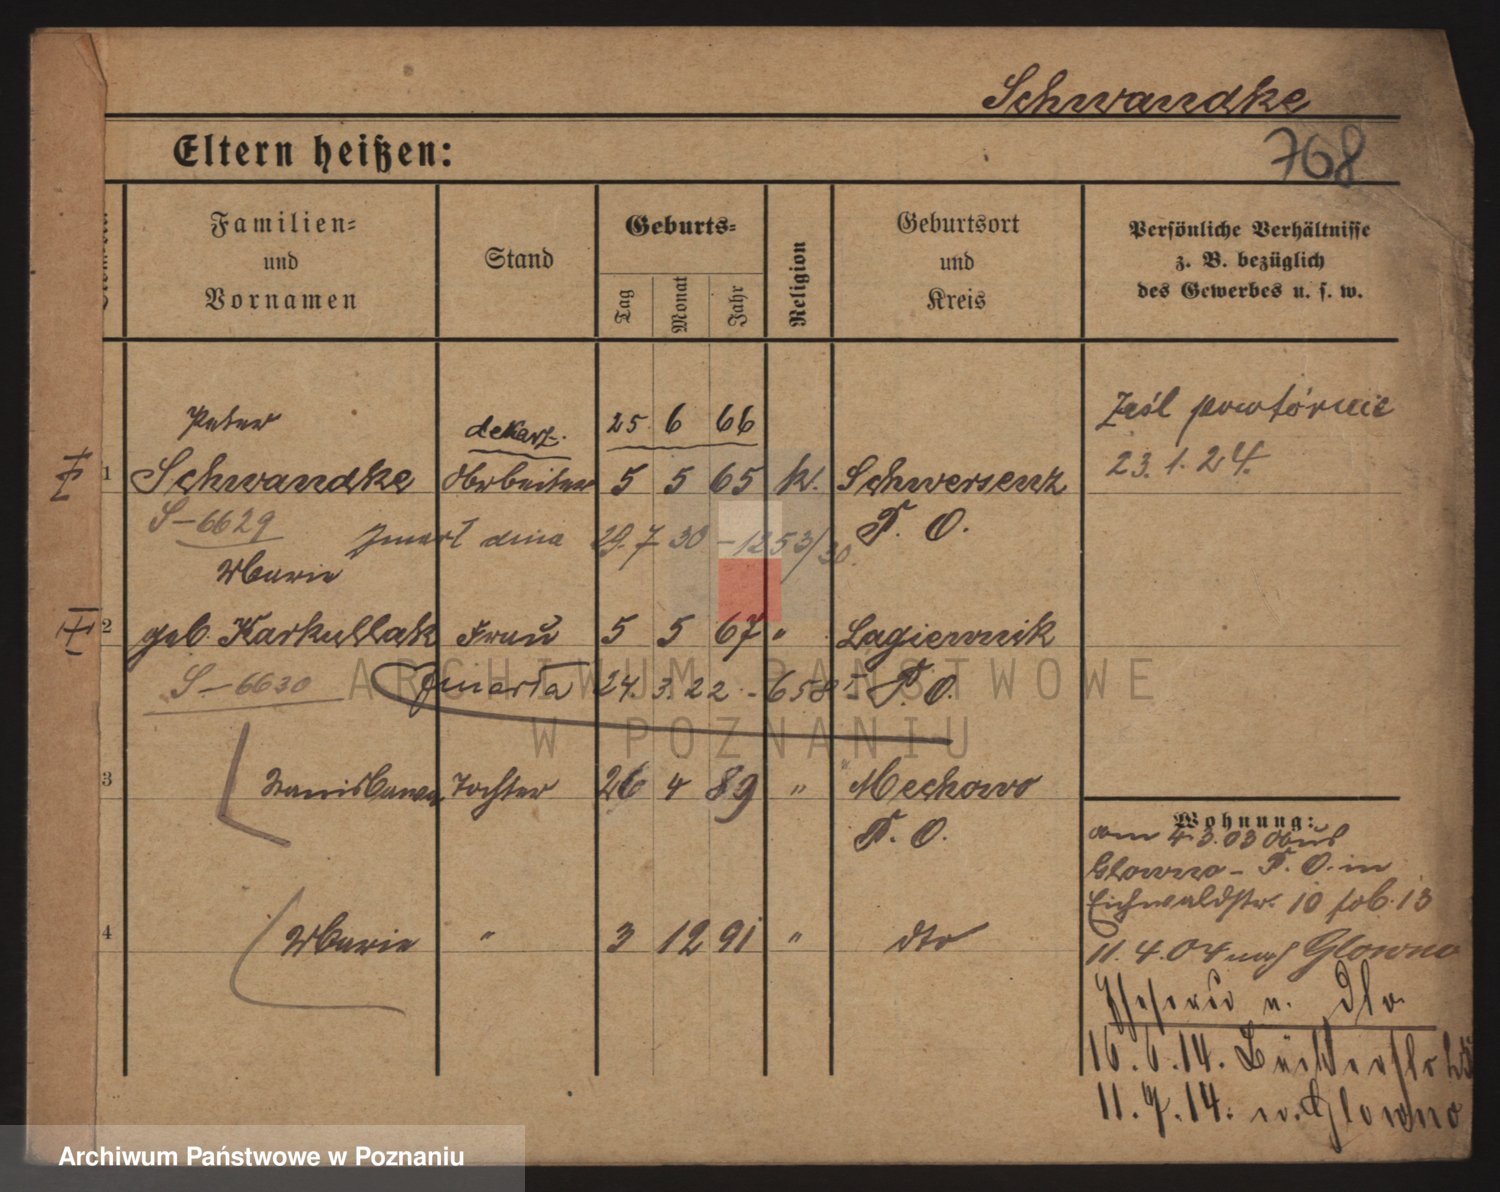 Schwandke
Eltern heißen:
768
Familien=
und
Vornamen
Stand
Geburts=
Tag
Monat
Jahr
Religion
Geburtsort
und
Kreis
Persönliche Verhältnisse
z. B. bezüglich
des Gewerbes u. s. w.
Peter
dekarz. 25. 6 66
I 1 Schwandke Arbeiter 5 5 65 k. Schwersenz
P. O.
S-6629
zmarł dnia 29. 7 30 - 1253/30.
23. 1. 24.
Marie
II 2 geb. Karkullak Frau 5 5 67 " Lagiewnik
P. O.
S-6630
zmarła 24. 3. 22 - 658
3 Stanislawa Tochter 26 4 89 " Mechowo
P. O.
4 Marie " 3 12 91 " dto
Wohnung:
am 4. 3. 03 aus
Glowno - P. O. in
Eichwaldstr. 10
11. 4. 04 nach Glowno
u. dto
16. 6. 14.
11. 7. 14. n. Glowno
ARCHIWUM PAŃSTWOWE
W POZNANIU
Archiwum Państwowe w Poznaniu